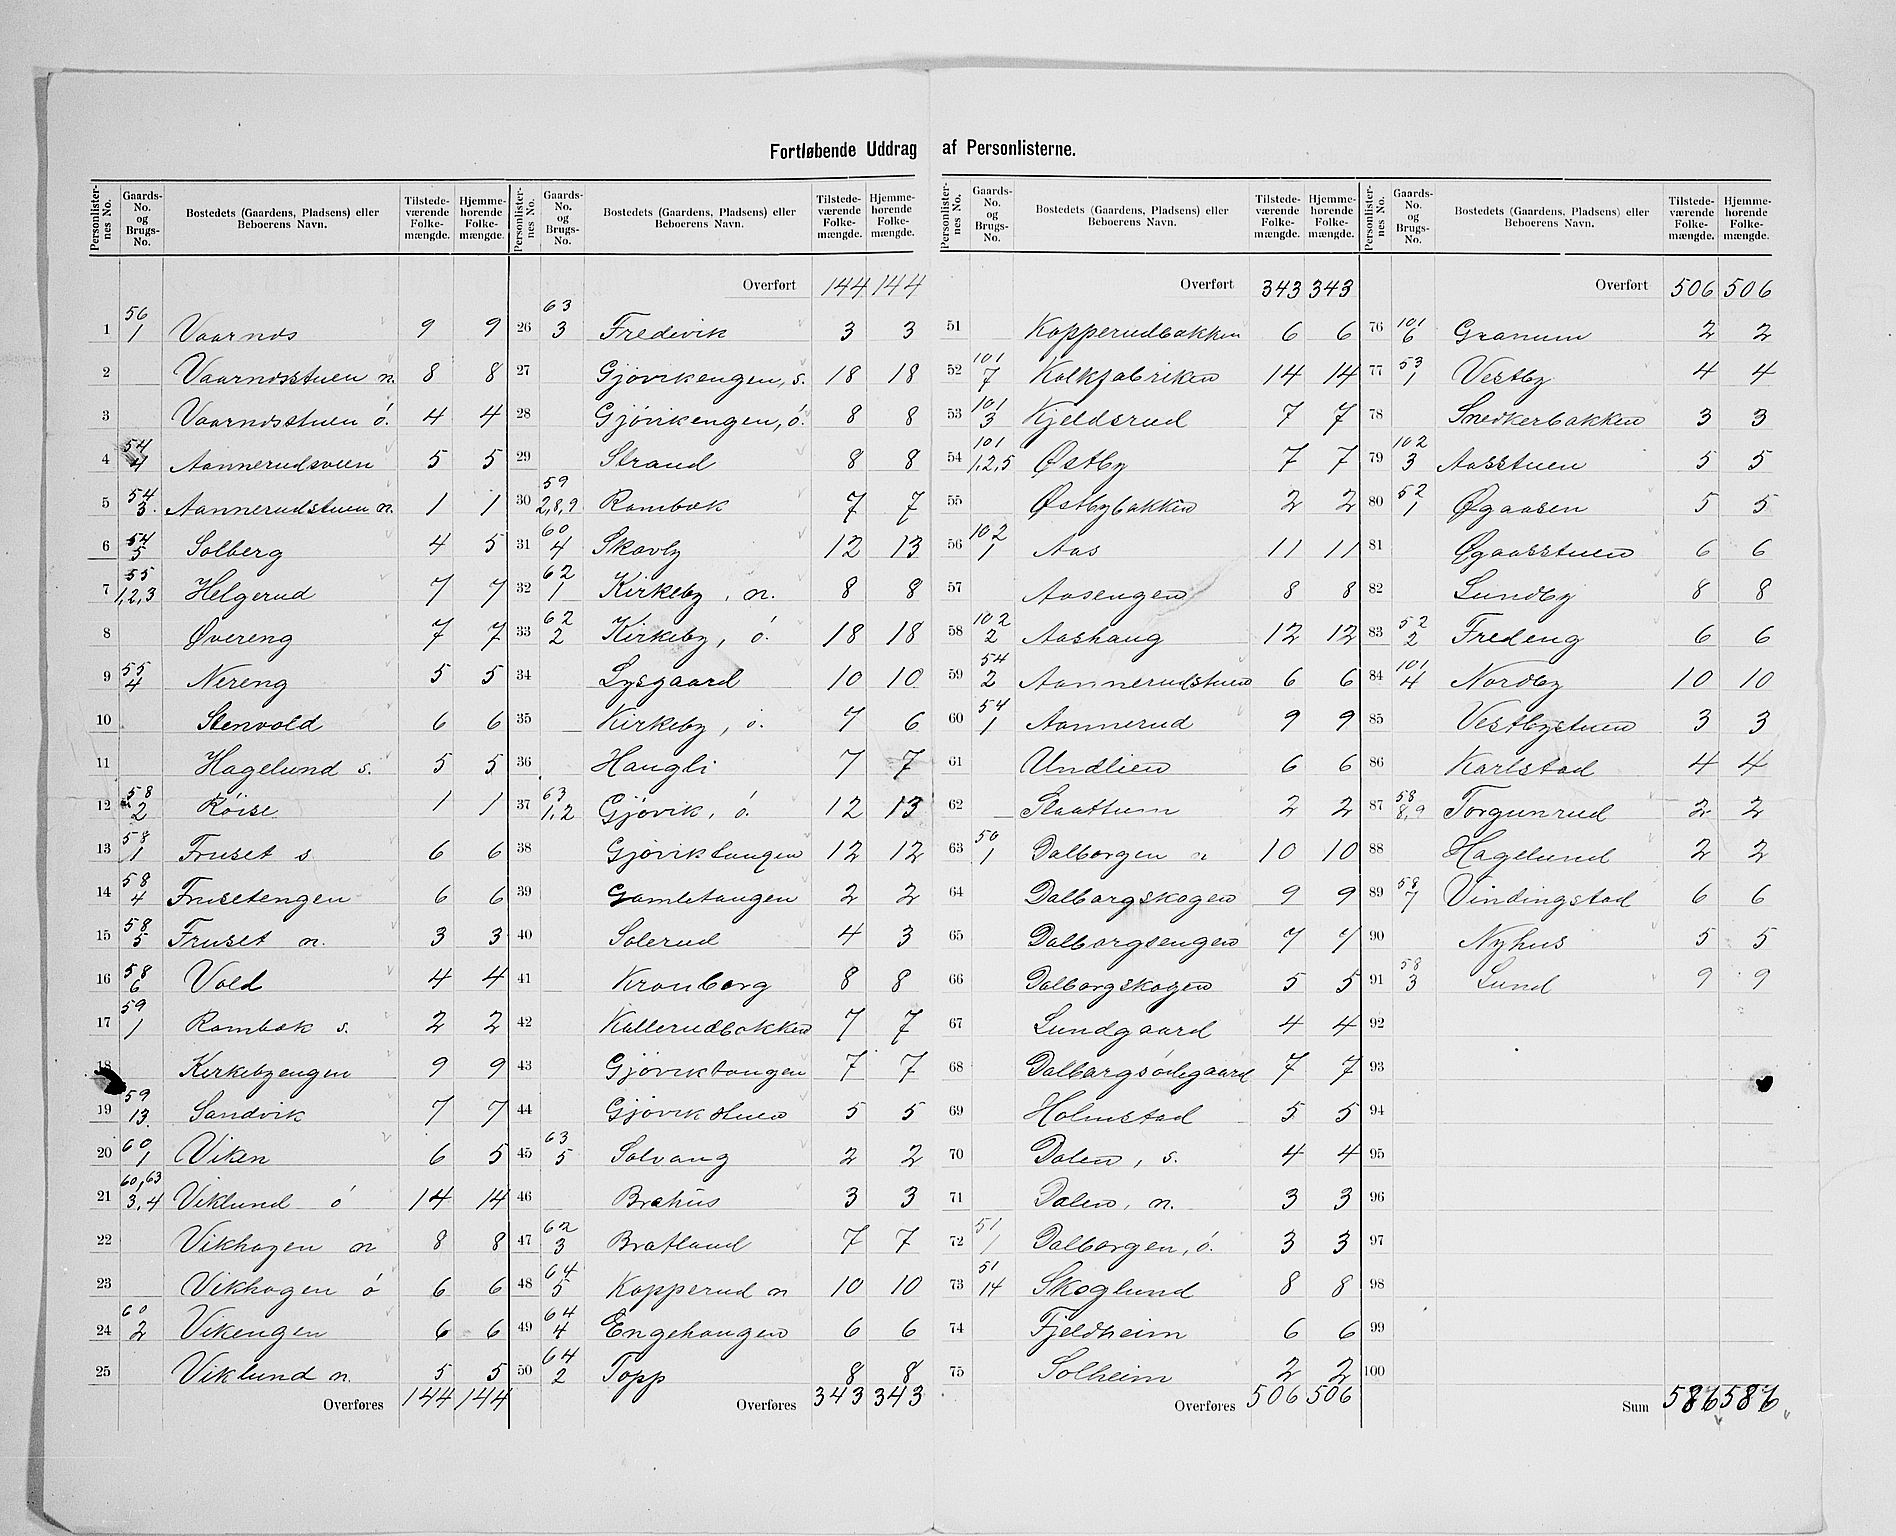 Fortløbende Uddrag af Personlisterne.
Personlister-nes No. | Gaards-No. og Brugs-No. | Bostedets (Gaardens, Pladsens) eller Beboerens Navn. | Tilstede-værende Folke-mængde. | Hjemme-hørende Folke-mængde.
1 56/1 Vaarnæs 9 9
2 Vaarnæsstuen n. 8 8
3 Vaarnæsstuen ö. 4 4
4 54/4 Aannerudsveen 5 5
5 54/3 Aannerudstuen n. 1 1
6 54/5 Solberg 4 5
7 55/1,2,3 Helgerud 7 7
8 Øvereng 7 7
9 55/4 Nereng 5 5
10 Stenvold 6 6
11 Hagelund s. 5 5
12 58/2 Röise 1 1
13 58/1 Fruset s. 6 6
14 58/4 Frusetengen 6 6
15 58/5 Fruset n. 3 3
16 58/6 Vold 4 4
17 59/1 Rambæk s. 2 2
18 Kirkebyengen 9 9
19 59/13 Sandvik 7 7
20 60/1 Viken 6 5
21 60,63/3,4 Viklund ö 14 14
22 Vikhagen n 8 8
23 Vikhagen ö 6 6
24 60/2 Vikengen 6 6
25 Viklund n. 5 5
Overføres 144 144
Personlister-nes No. | Gaards-No. og Brugs-No. | Bostedets (Gaardens, Pladsens) eller Beboerens Navn. | Tilstede-værende Folke-mængde. | Hjemme-hørende Folke-mængde.
Overført 144 144
26 63/3 Fredevik 3 3
27 Gjövikengen, s. 18 18
28 Gjövikengen, ö. 8 8
29 Strand 8 8
30 59/2,8,9 Rambæk 7 7
31 60/4 Skavby 12 13
32 62/1 Kirkeby, n. 8 8
33 62/2 Kirkeby, ö. 18 18
34 Lysgaard 10 10
35 Kirkeby, ö. 7 6
36 Haugli 7 7
37 63/1,2 Gjövik, ö. 12 13
38 Gjöviktangen 12 12
39 Gamletangen 2 2
40 Solerud 4 3
41 Kronborg 8 8
42 Kallerudbakken 7 7
43 Gjöviktangen 7 7
44 Gjövikstuen 5 5
45 63/5 Solvang 2 2
46 Bræhus 3 3
47 62/3 Bratland 7 7
48 64/5 Kopperud n 10 10
49 64/4 Engehaugen 6 6
50 64/2 Topp 8 8
Overføres 343 343
Personlister-nes No. | Gaards-No. og Brugs-No. | Bostedets (Gaardens, Pladsens) eller Beboerens Navn. | Tilstede-værende Folke-mængde. | Hjemme-hørende Folke-mængde.
Overført 343 343
51 Kopperudbakken 6 6
52 101/7 Kalkfabriken 14 14
53 101/3 Kjeldsrud 7 7
54 101/1,2,5 Østby 7 7
55 Østbybakken 2 2
56 102/1 Aas 11 11
57 Aasengen 8 8
58 102/2 Aashaug 12 12
59 54/2 Aannerudstuen 6 6
60 54/1 Aannerud 9 9
61 Undlien 6 6
62 Slaattum 2 2
63 50/1 Dalborgen n 10 10
64 Dalborgskogen 9 9
65 Dalborgsengen 7 7
66 Dalborgskogen 5 5
67 Lundgaard 4 4
68 Dalborgsödegaard 7 7
69 Holmstad 5 5
70 Dalen, s. 4 4
71 Dalen, n. 3 3
72 51/1 Dalborgen, ö. 3 3
73 51/14 Skoglund 8 8
74 Fjeldheim 6 6
75 Solheim 2 2
Overføres 506 506
Personlister-nes No. | Gaards-No. og Brugs-No. | Bostedets (Gaardens, Pladsens) eller Beboerens Navn. | Tilstede-værende Folke-mængde. | Hjemme-hørende Folke-mængde.
Overført 506 506
76 101/6 Granum 2 2
77 53/1 Vestby 4 4
78 Snedkerbakken 3 3
79 102/3 Aasstuen 5 5
80 52/1 Øgaasen 5 5
81 Øgaasstuen 6 6
82 Lundby 8 8
83 52/2 Fredeng 6 6
84 101/4 Nordby 10 10
85 Vestbystuen 3 3
86 Karlstad 4 4
87 58/8,9 Torgunrud 2 2
88 Hagelund 2 2
89 58/7 Vindingstad 6 6
90 Nyhus 5 5
91 58/3 Lund 9 9
92
93
94
95
96
97
98
99
100
Sum 586 586